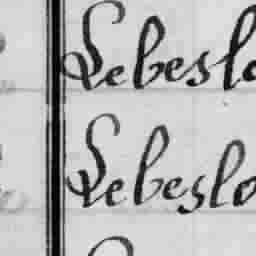 Lebeslo
Lebeslo